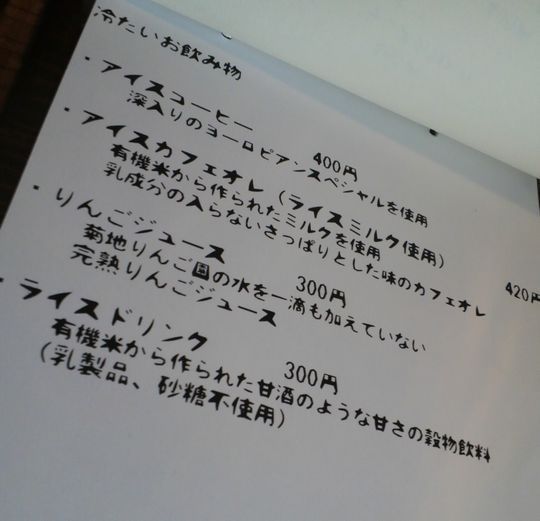 冷たいお飲み物
・アイスコーヒー 400円
深入りのヨーロピアンスペシャルを使用
・アイスカフェオレ(ライスミルク使用) 420円
有機米から作られたミルクを使用
乳成分の入らないさっぱりとした味のカフェオレ
・りんごジュース 300円
菊地りんご園の水を一滴も加えていない
完熟りんごジュース
・ライスドリンク 300円
有機米から作られた甘酒のような甘さの穀物飲料
(乳製品、砂糖不使用)